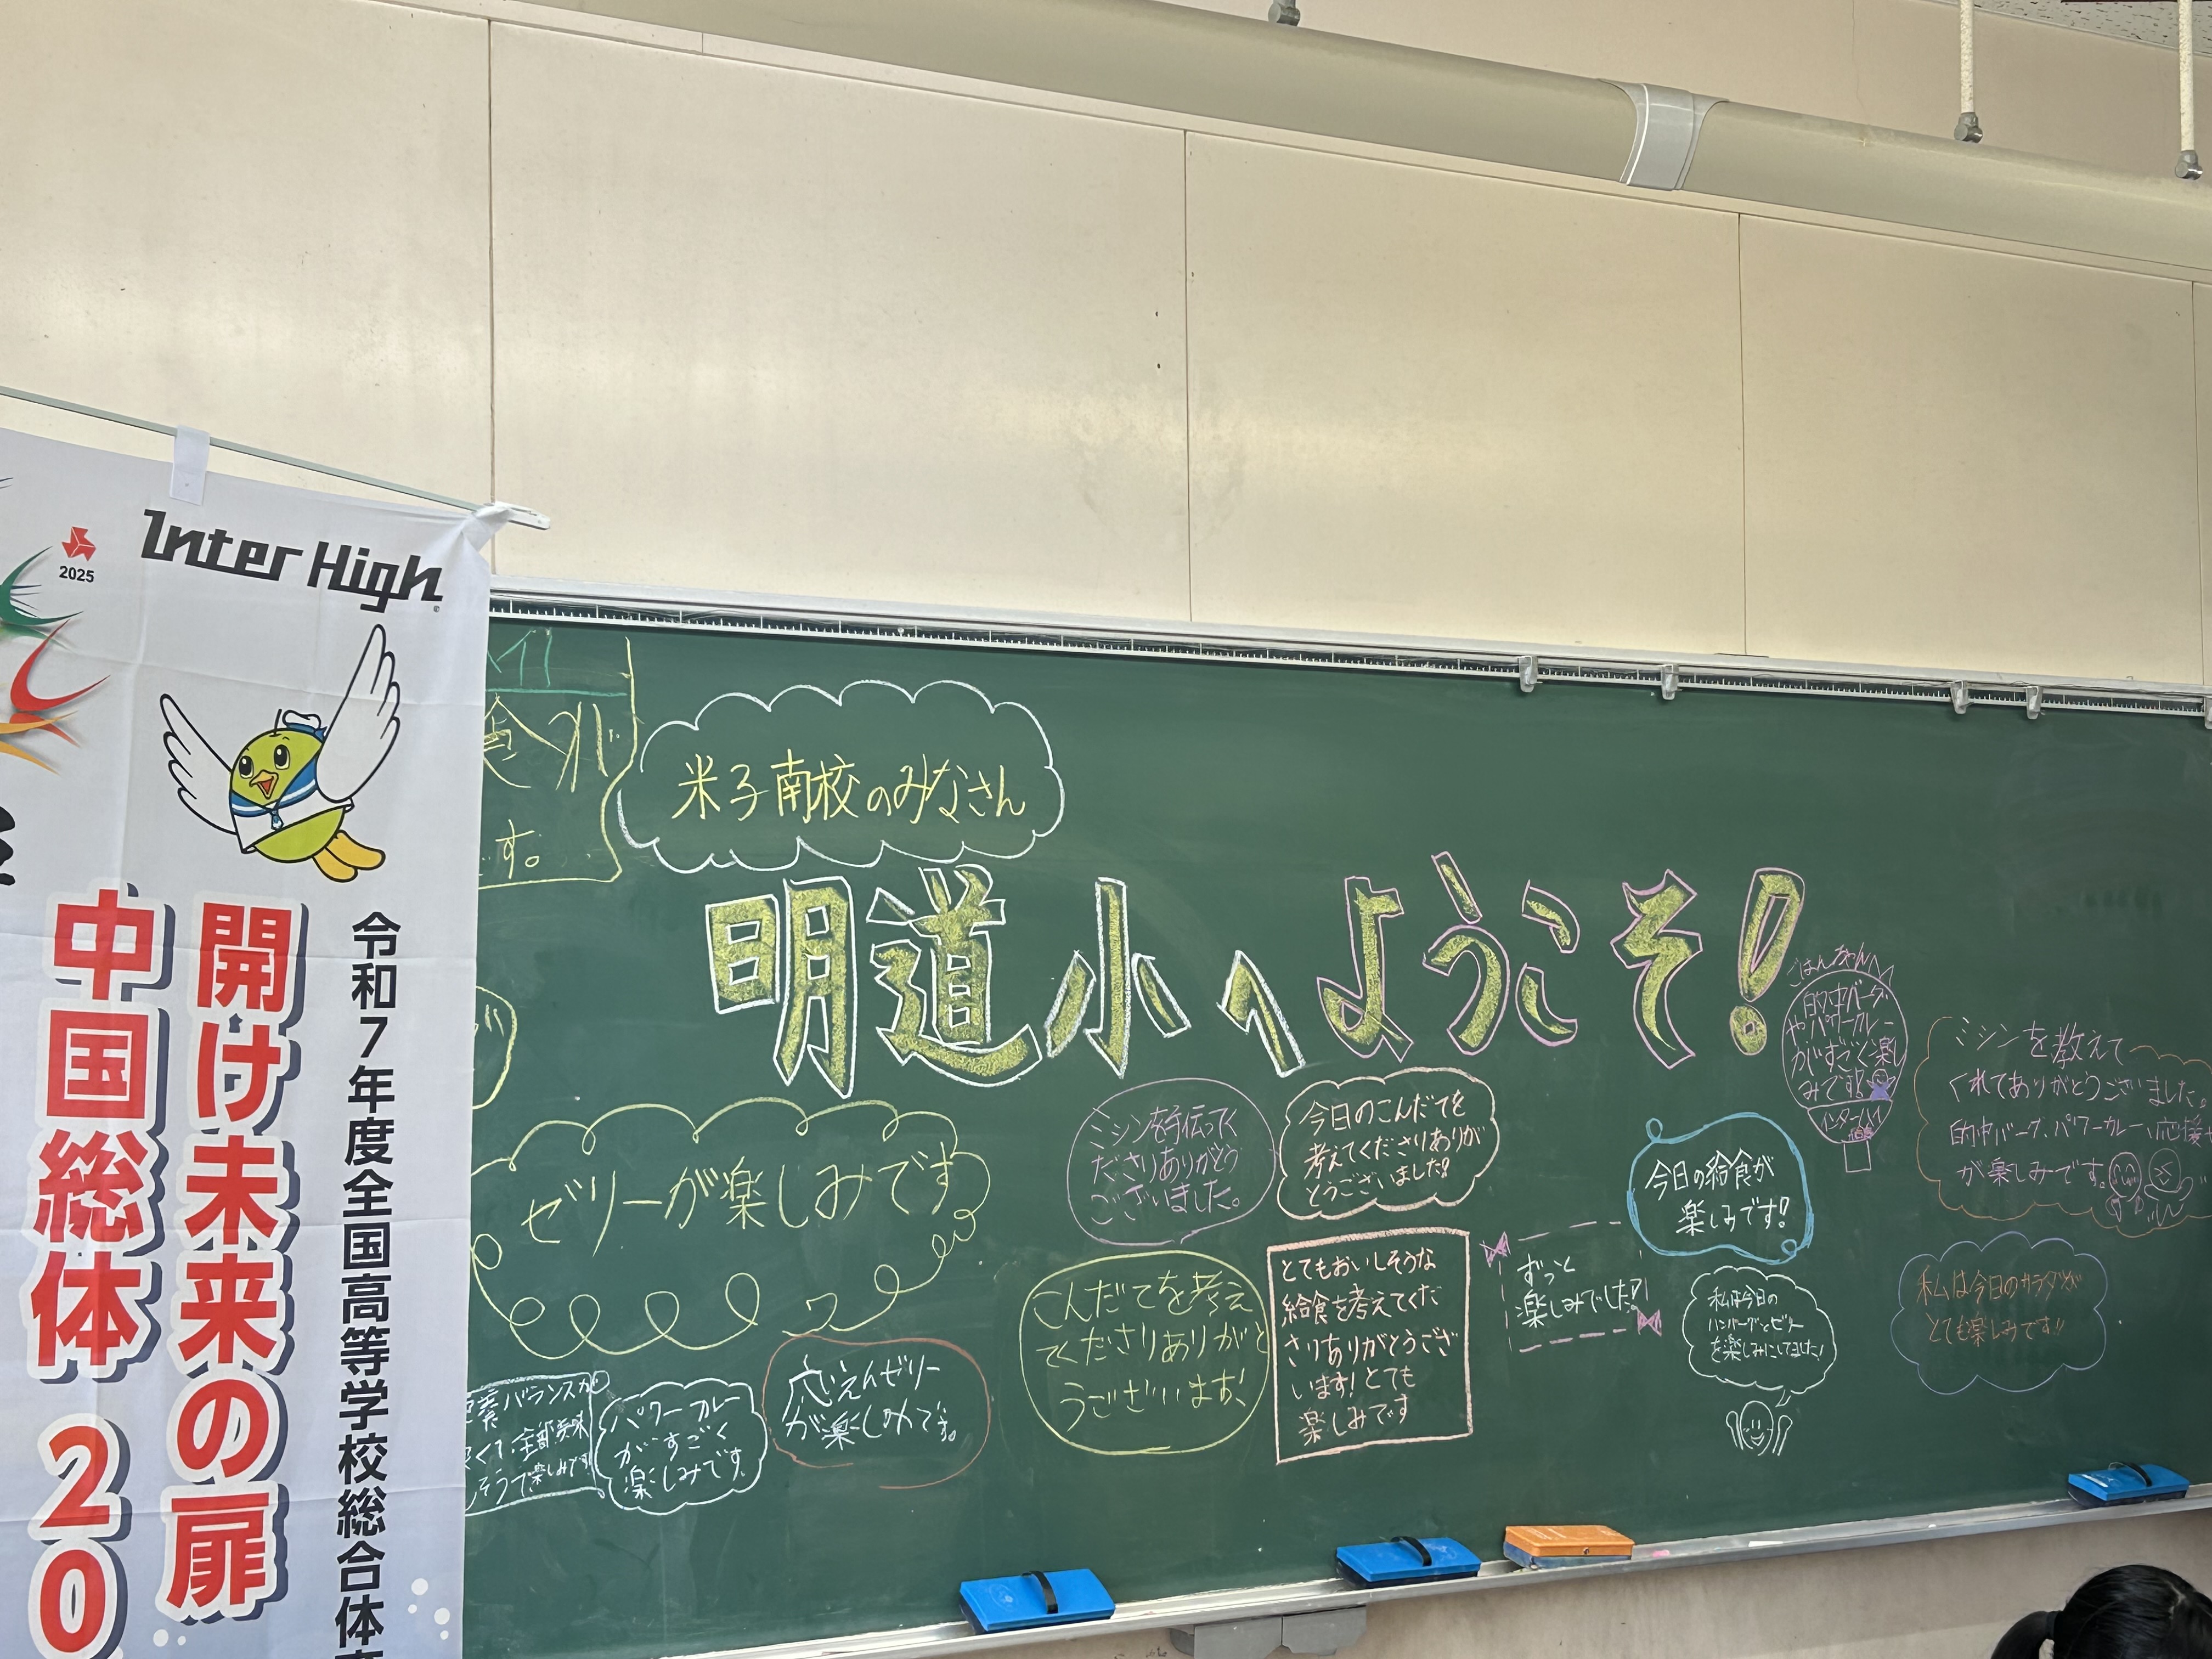 Inter High
2025
令和7年度全国高等学校総合体
開け未来の扉
中国総体 20
す。
米子南校のみなさん
明道小へようこそ!
ゼリーが楽しみです
ミシンを手伝って
くださりありがとう
ございました。
今日のこんだてを
考えてくださりありが
とうございました!
こんだてを考え
てくださりありがと
うございます!
とてもおいしそうな
給食を考えてくだ
さりありがとうござ
います!とても
楽しみです
ずっと
楽しみでした!
今日の給食が
楽しみです!
私は今日の
ハンバーグとゼリー
を楽しみにしてました!
ごはんちゃん
的中バーグ
やパワーカレー
がすごく楽し
みです!
インターハイ
ミシンを教えて
くれてありがとうございました。
的中バーグ、パワーカレー、応援
が楽しみです。
私は今日のサラダが
とても楽しみです!!
バランスが
全部美味
そうで楽しみです!
パワーカレー
がすごく
楽しみです。
応えんゼリー
が楽しみです。